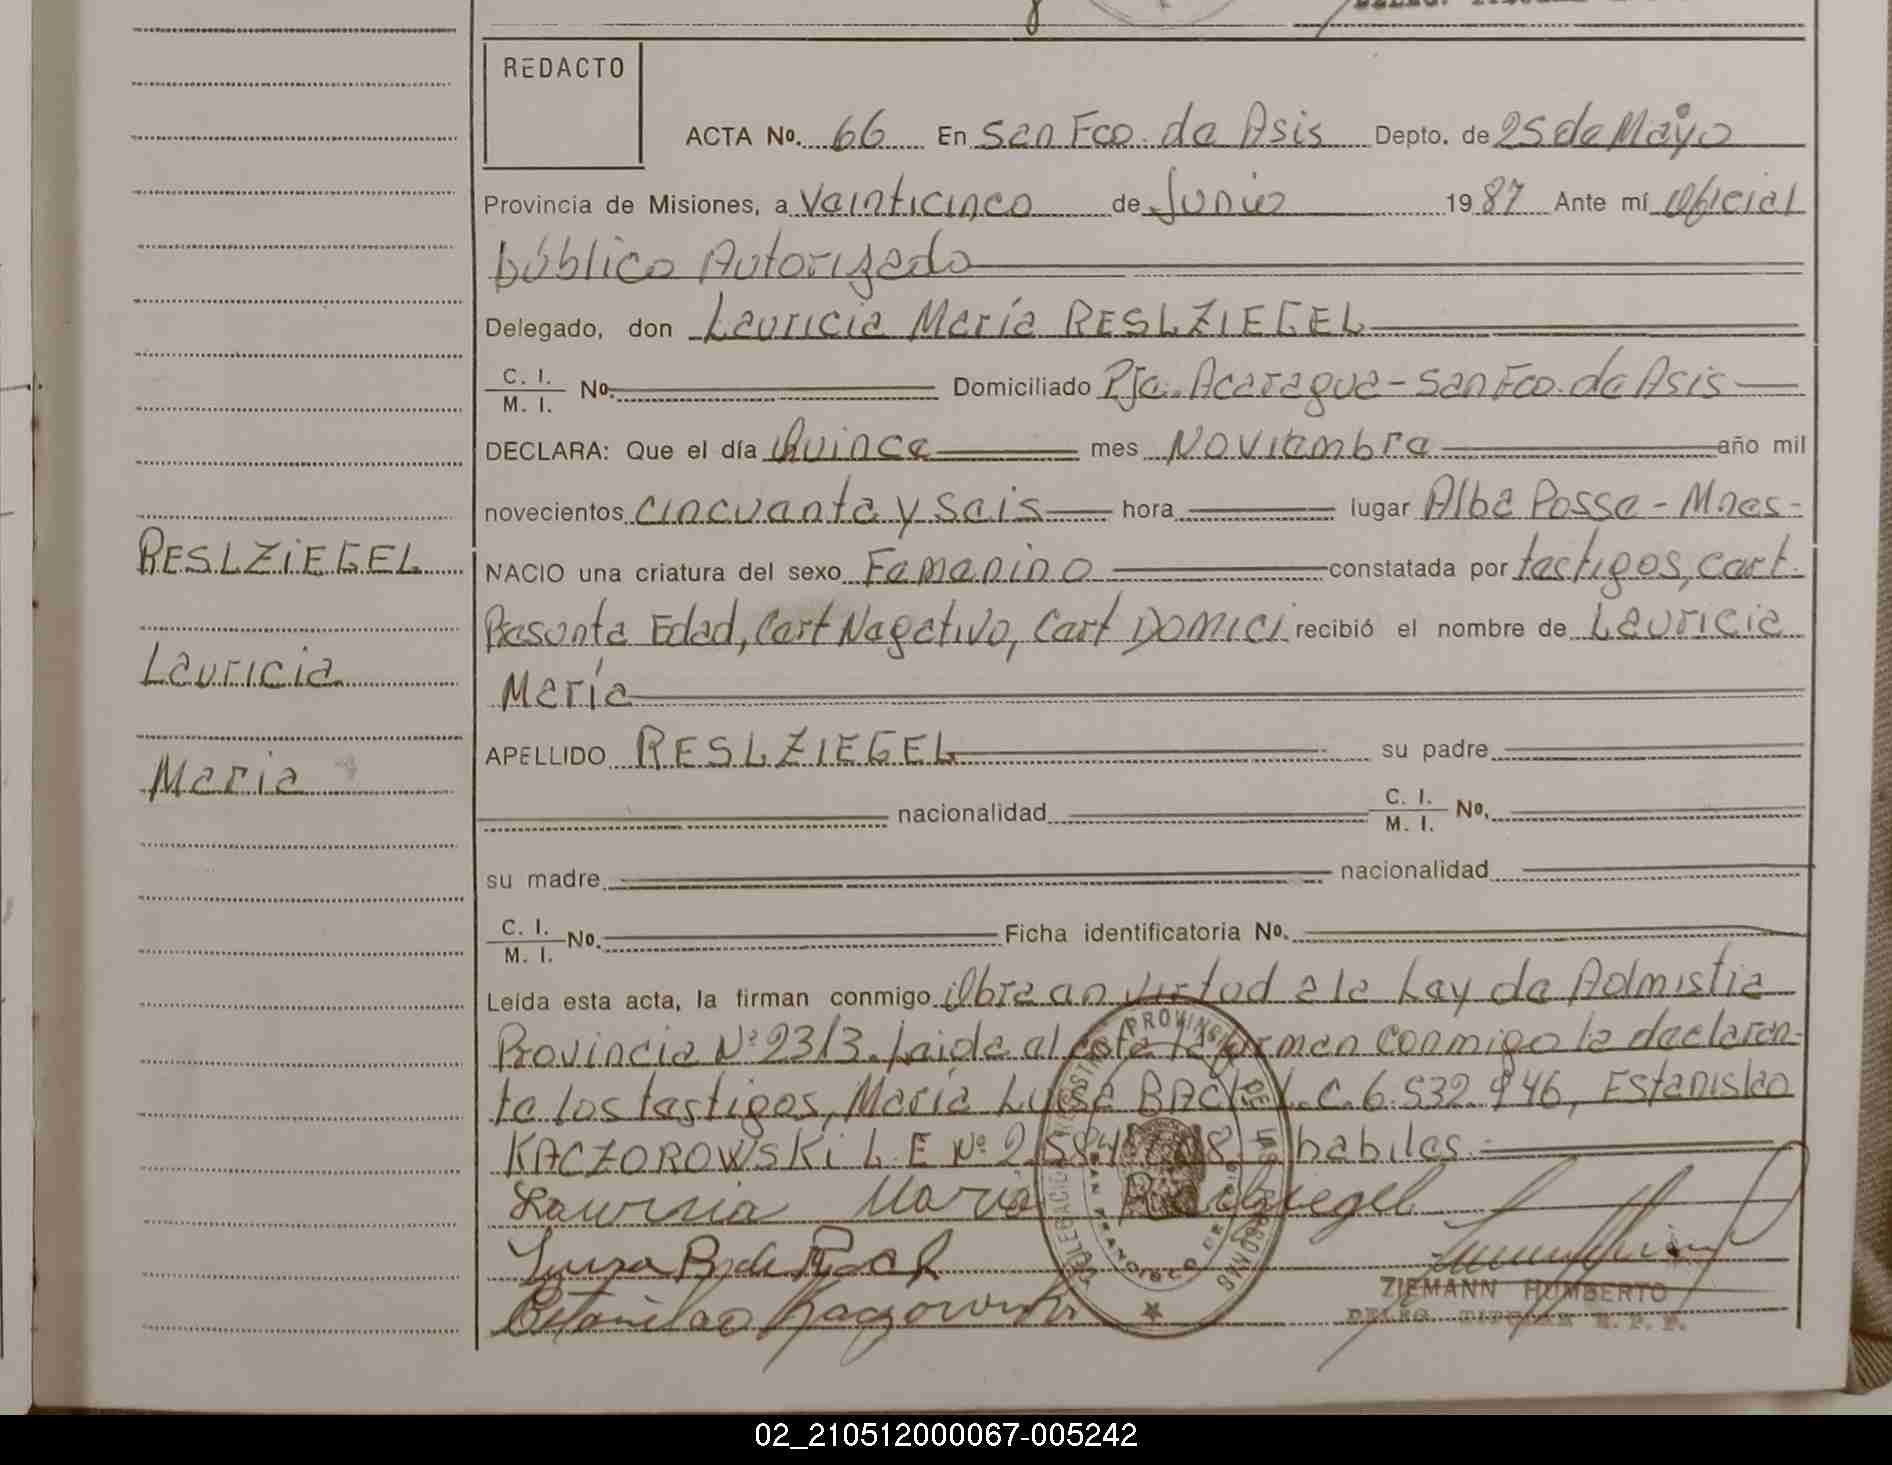 REDACTO
ACTA No. 66 En San Fco. de Asis Depto. de 25 de Mayo
Provincia de Misiones, a Veinticinco de Junio 1987 Ante mí Oficial
público Autorizado
Delegado, don Lauricia María RESLZIEGEL
C. I. / M. I. No. Domiciliado Pje. Acaragua - San Fco. de Asis
DECLARA: Que el día Quince mes Noviembre año mil
novecientos cincuenta y seis hora lugar Alba Posse - Mnes-
RESLZiEGEL
NACIO una criatura del sexo Femenino constatada por testigos, cert.
Presunta Edad, Cert Negativo, Cert DOMICI recibió el nombre de Lauricia
Lauricia
María
APELLIDO RESLZIEGEL su padre
Maria
nacionalidad C. I. / M. I. No.
su madre nacionalidad
C. I. / M. I. No. Ficha identificatoria No.
Leída esta acta, la firman conmigo Obra en virtud a la Ley de Admistia
Provincia Nº 2313. Leida el acta la firman conmigo la declaran-
te los testigos, María Luisa L.C. 6.532.946, Estanislao
KACZOROWSKi L.E Nº habiles.
Lauricia Maria Reslziegel
Luisa B. de
Estanislao Kaczorowski
ZIEMANN HUMBERTO
DELEG. TITULAR R. P. P.
02_210512000067-005242